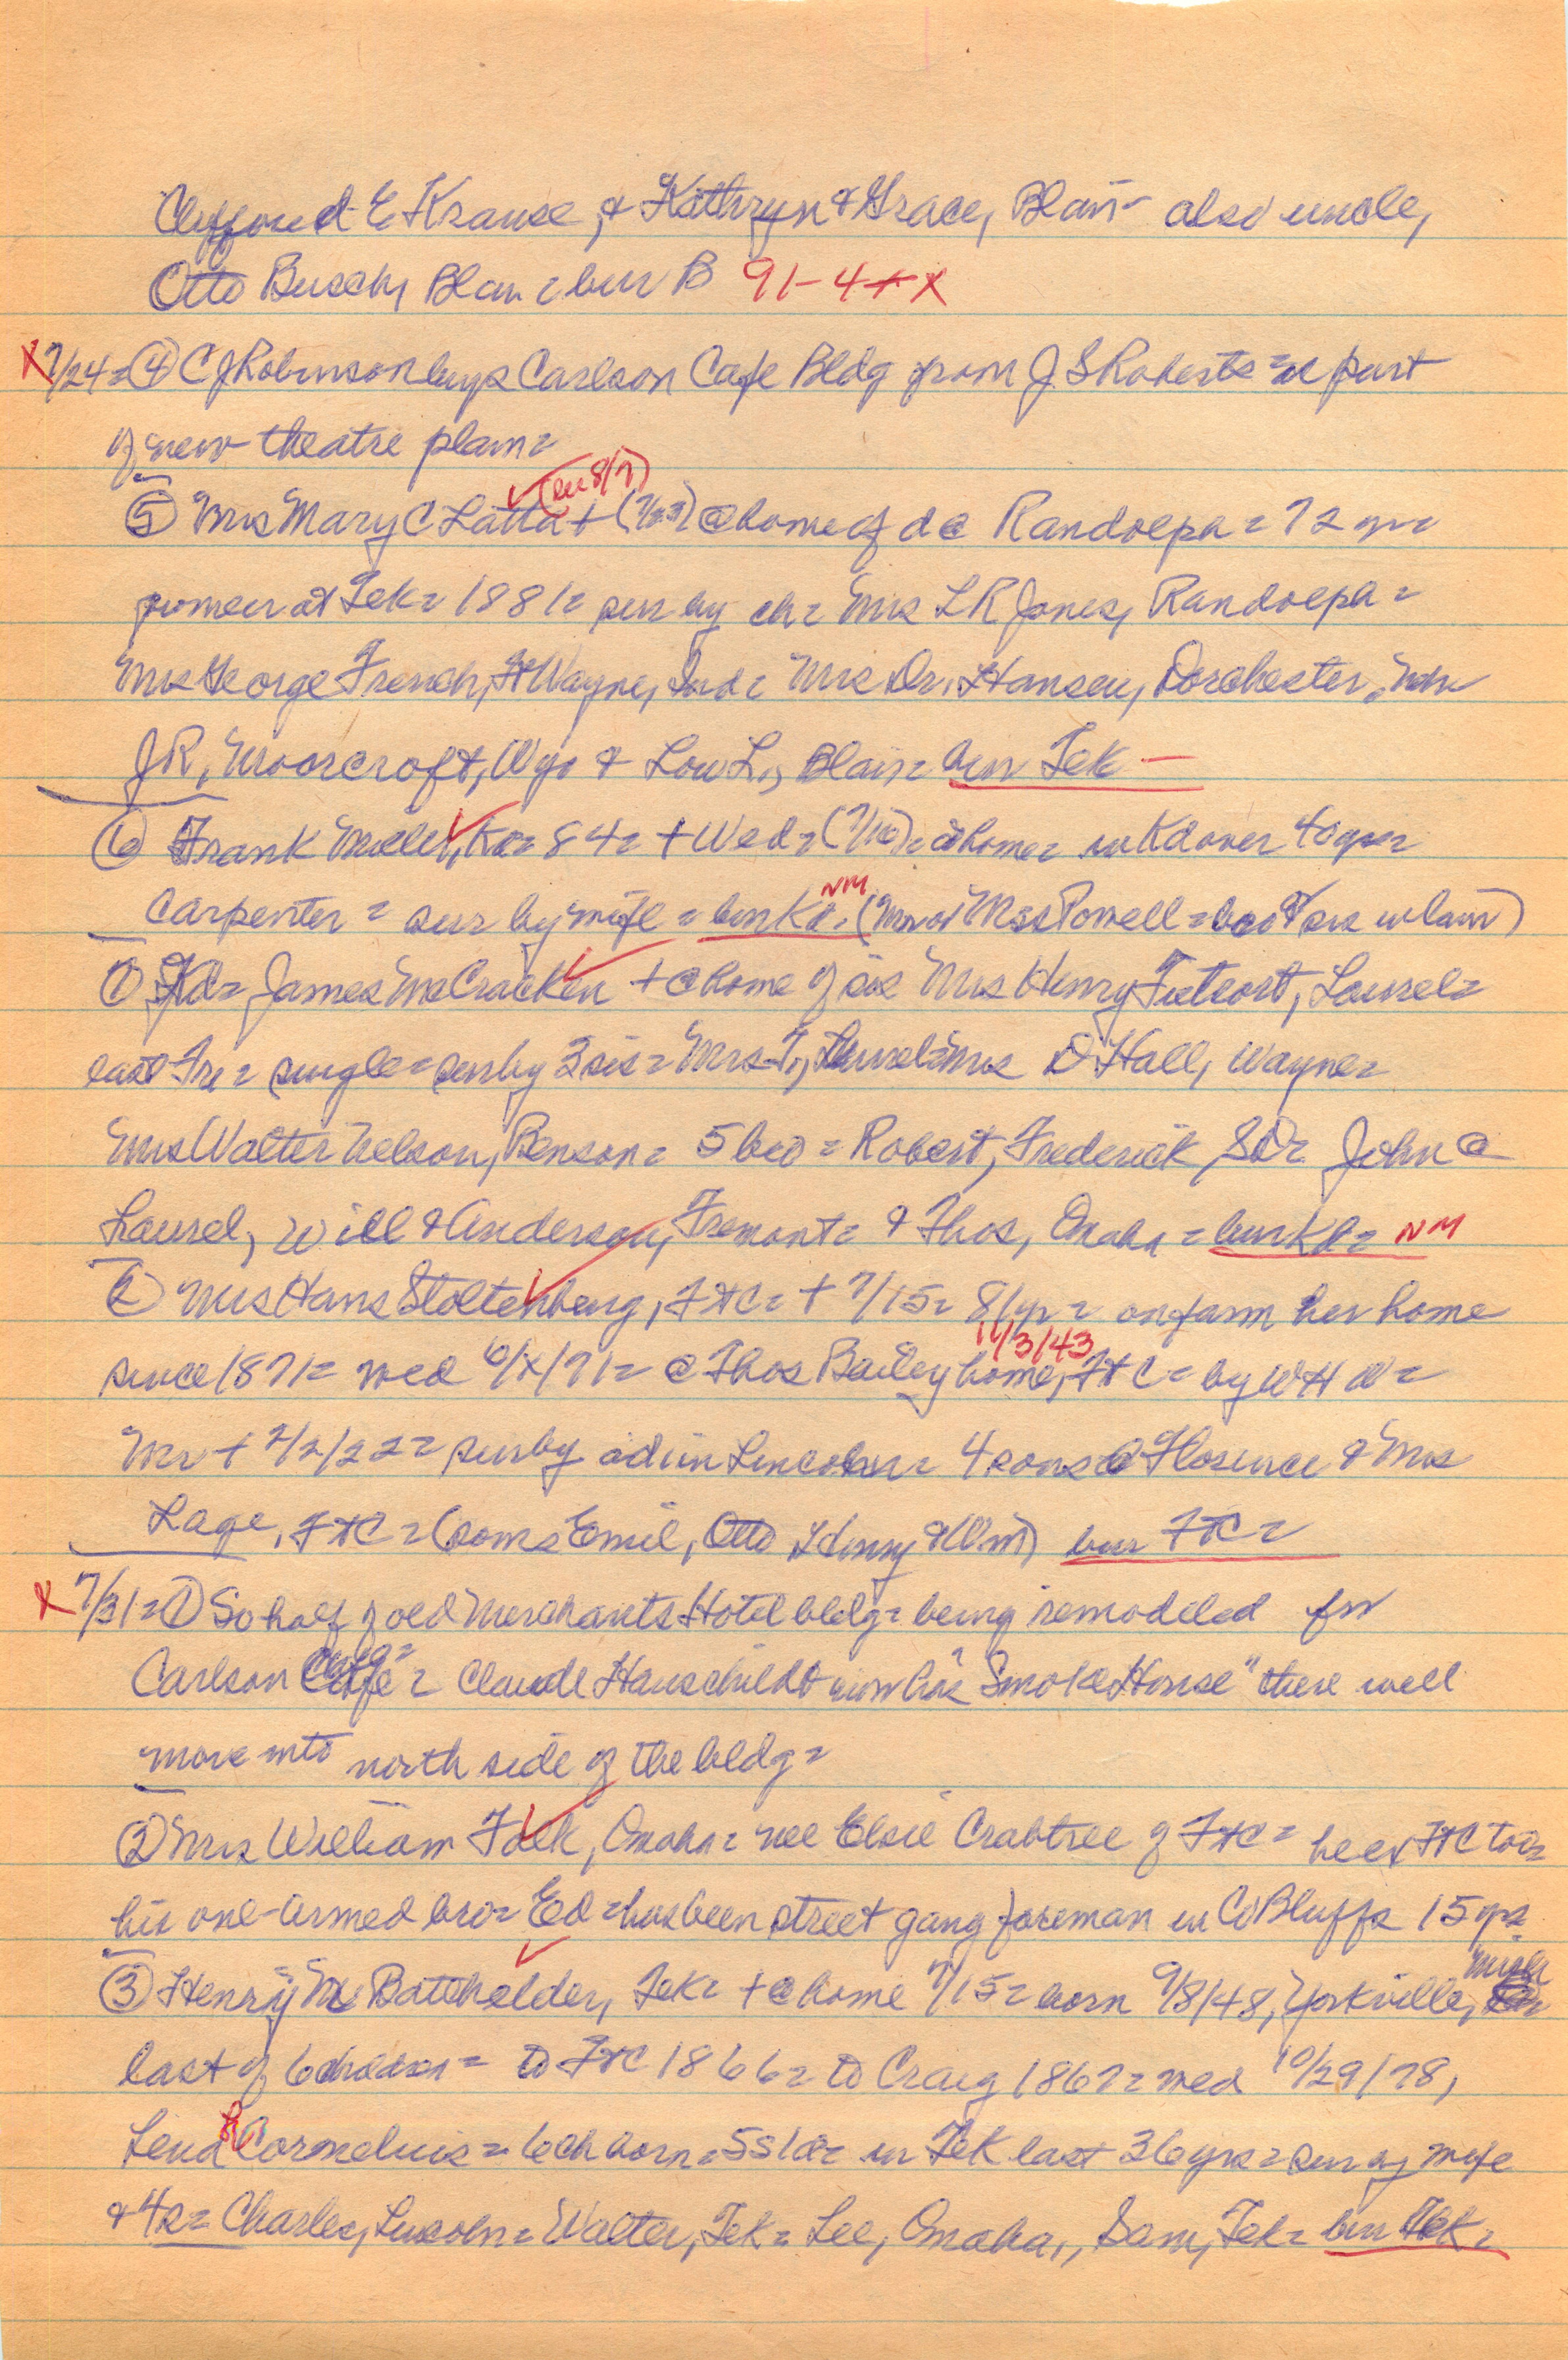 Clifford E Krause, & Kathryn & Grace, Blair - also uncle,
Otto Busch, Blair = bur B 91-4 + X
X 7/24 = ④ C J Robinson buys Carlson Cafe Bldg from J S Roberts = as part
of new theatre plan =
(see 8/7)
⑤ Mrs Mary C Latta + @ home of da Randolph = 72 yr =
pioneer at Tek = 1881 = sur by ch = Mrs L R Jones, Randolph =
Mrs George French, Ft Wayne, Ind = Mrs Dr. Hansen, Dorchester,
J R, Moorcroft, Wyo & Lou L., Blair = bur Tek —
⑥ Frank Miller, Ka = 84 = + Wed = (7/16) = @ home = in Kd over 40 yr =
NM
Carpenter = sur by wife = bur Kd. (Powell = bro & sis in law)
① Kd = James McCracken + @ home of sis Mrs Henry Tietsort, Laurel =
last Fri = single = sur by 3 sis = Mrs T., Laurel = Mrs D Hall, Wayne =
Mrs Walter Nelson, Benson = 5 bro = Robert, Frederick, SD = John @
Laurel, Will & Anderson, Fremont = & Thos, Omaha = bur Kd = NM
② Mrs Hans Stoltenberg, FtC = + 7/15 = 81 yr = on farm her home
11/3/43
since 1871 = wed 6/X/71 = @ Thos Bailey home, FtC = by W H W =
Mr + 2/2/22 = sur by ad in Lincoln = 4 sons @ Florence & Mrs
Lage, FtC = (sons Emil, Otto, Henry & Wm) bur FtC =
X 7/31 = ① So half of old Merchants Hotel bldg = being remodeled for
Carlson Cafe = Claude Hauschildt now his "Smoke House" there will
move into north side of the bldg =
② Mrs William Falk, Omaha = nee Elsie Crabtree of FtC = he ex FtC too =
his one-armed bro = Ed = has been street gang foreman in C Bluffs 15 yrs
③ Henry M Batchelder, Tek = + @ home 7/15 = born 9/8/48, Yorkville,
last of 6 children = to FtC 1866 = to Craig 1867 = wed 10/29/78,
Lena R Cornelius = 6 ch born = 5s 1d = in Tek last 36 yrs = sur by wife
& 4s = Charles, Lincoln = Walter, Tek = Lee, Omaha, Sam, Tek = bur Tek =